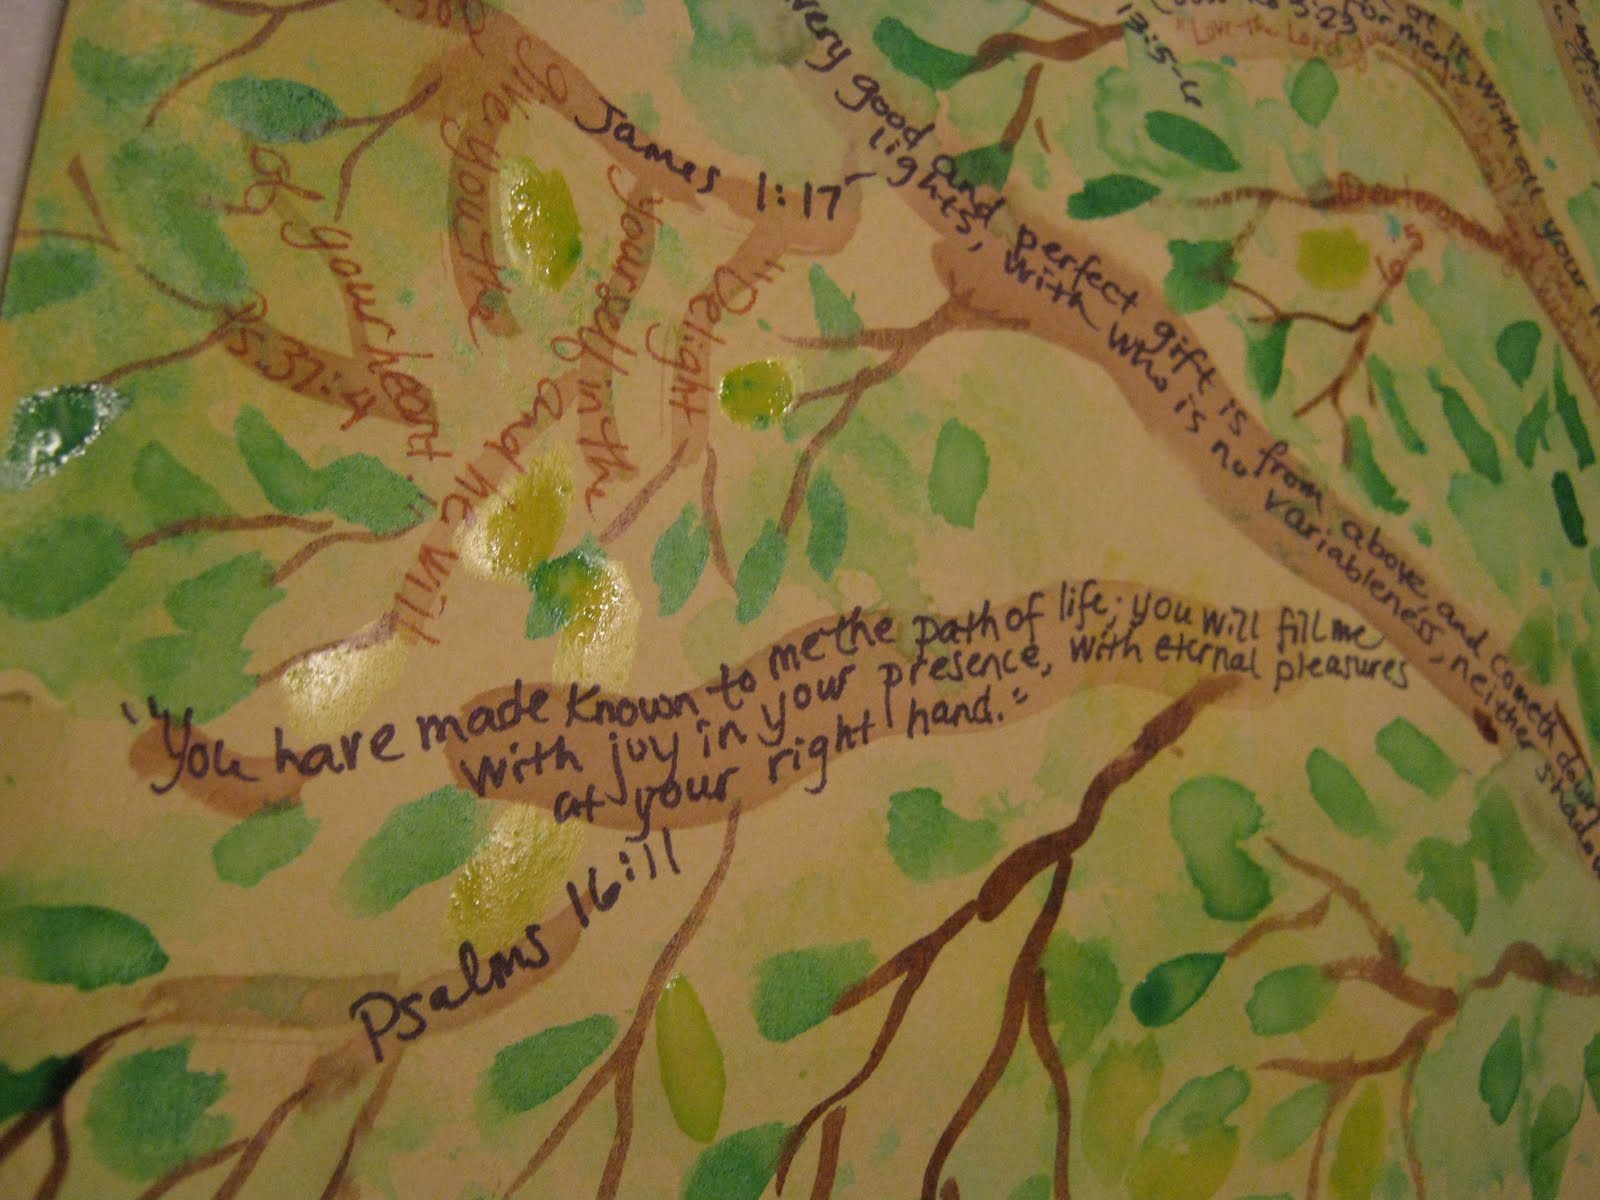 James 1:17
very good and perfect gift is from above, and cometh down
lights, with who is no variableness, neither shadow
"Delight
yourself in the
and he will
give you the
of your heart."
Ps. 37:4
"You have made known to me the path of life; you will fill me
with joy in your presence, with eternal pleasures
at your right hand."
Psalms 16:11
at it with all your
for men
3:23
"Love the Lord your
13:5-6
Deuteronomy
6:5